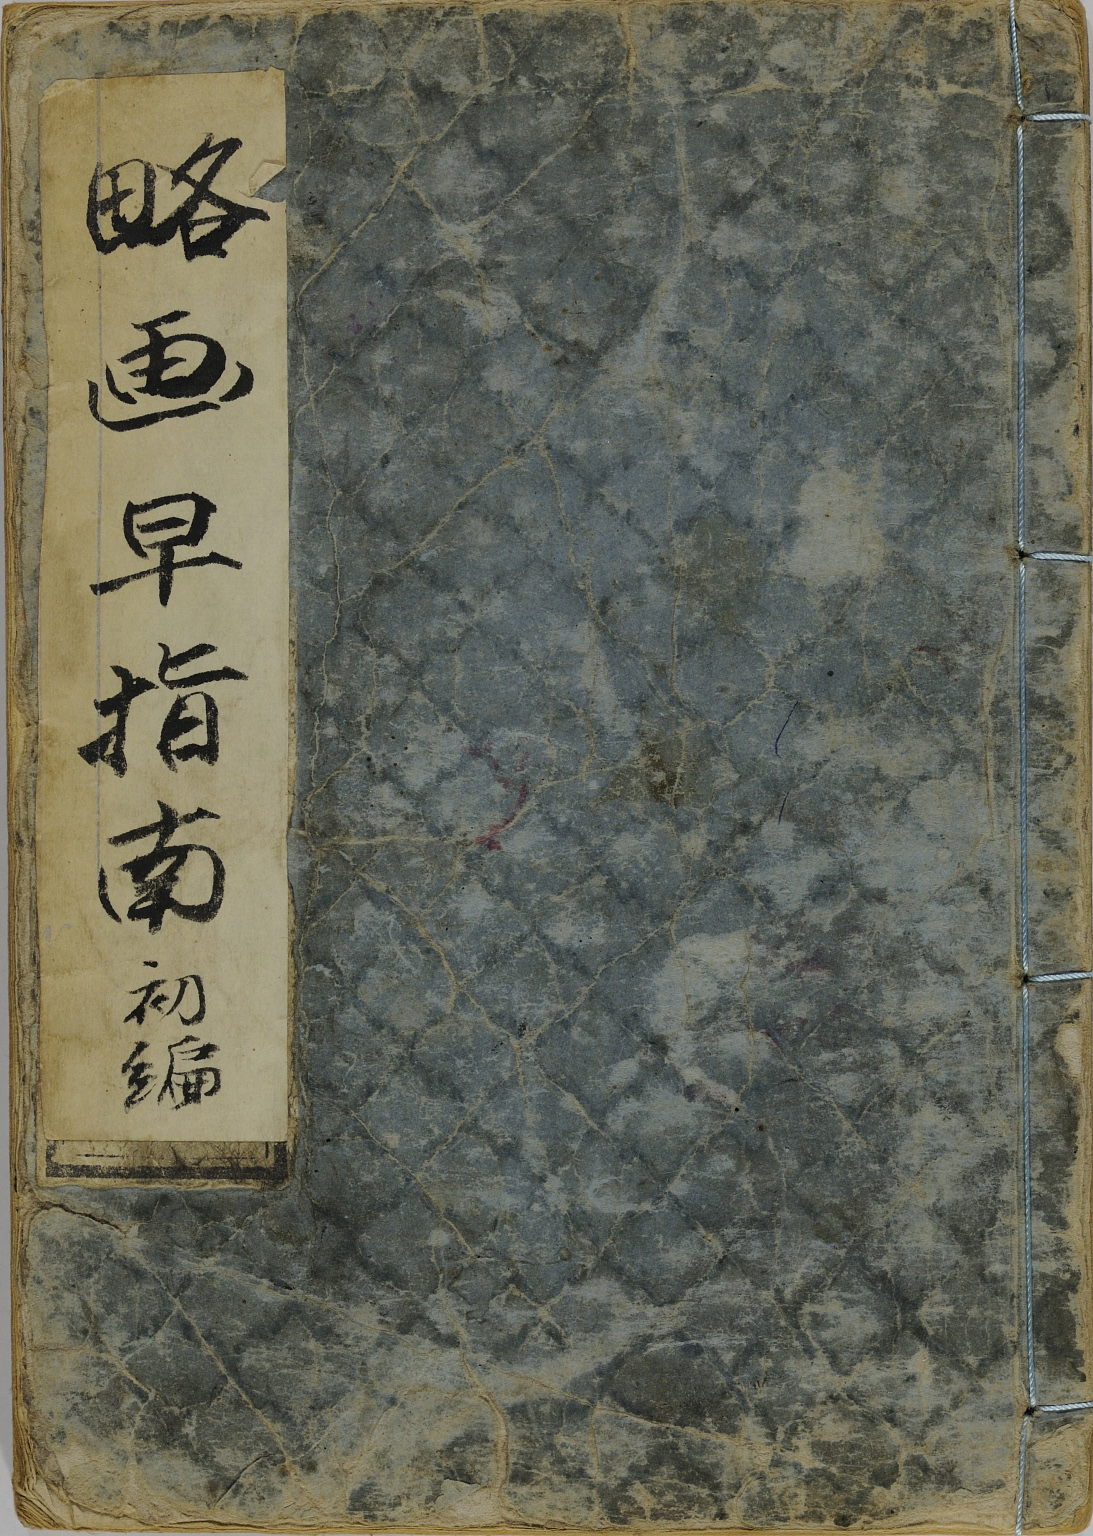 略画早指南初編